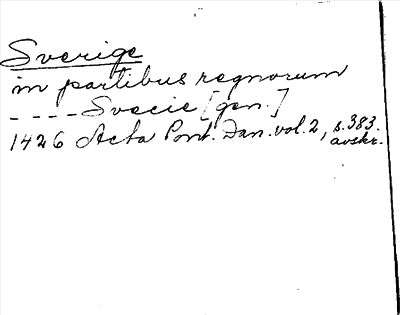 Sverige
in partibus regnorum
- - - - Svecie [gen.]
1426 Acta Pont. Dan. vol. 2, s. 383.
avskr.